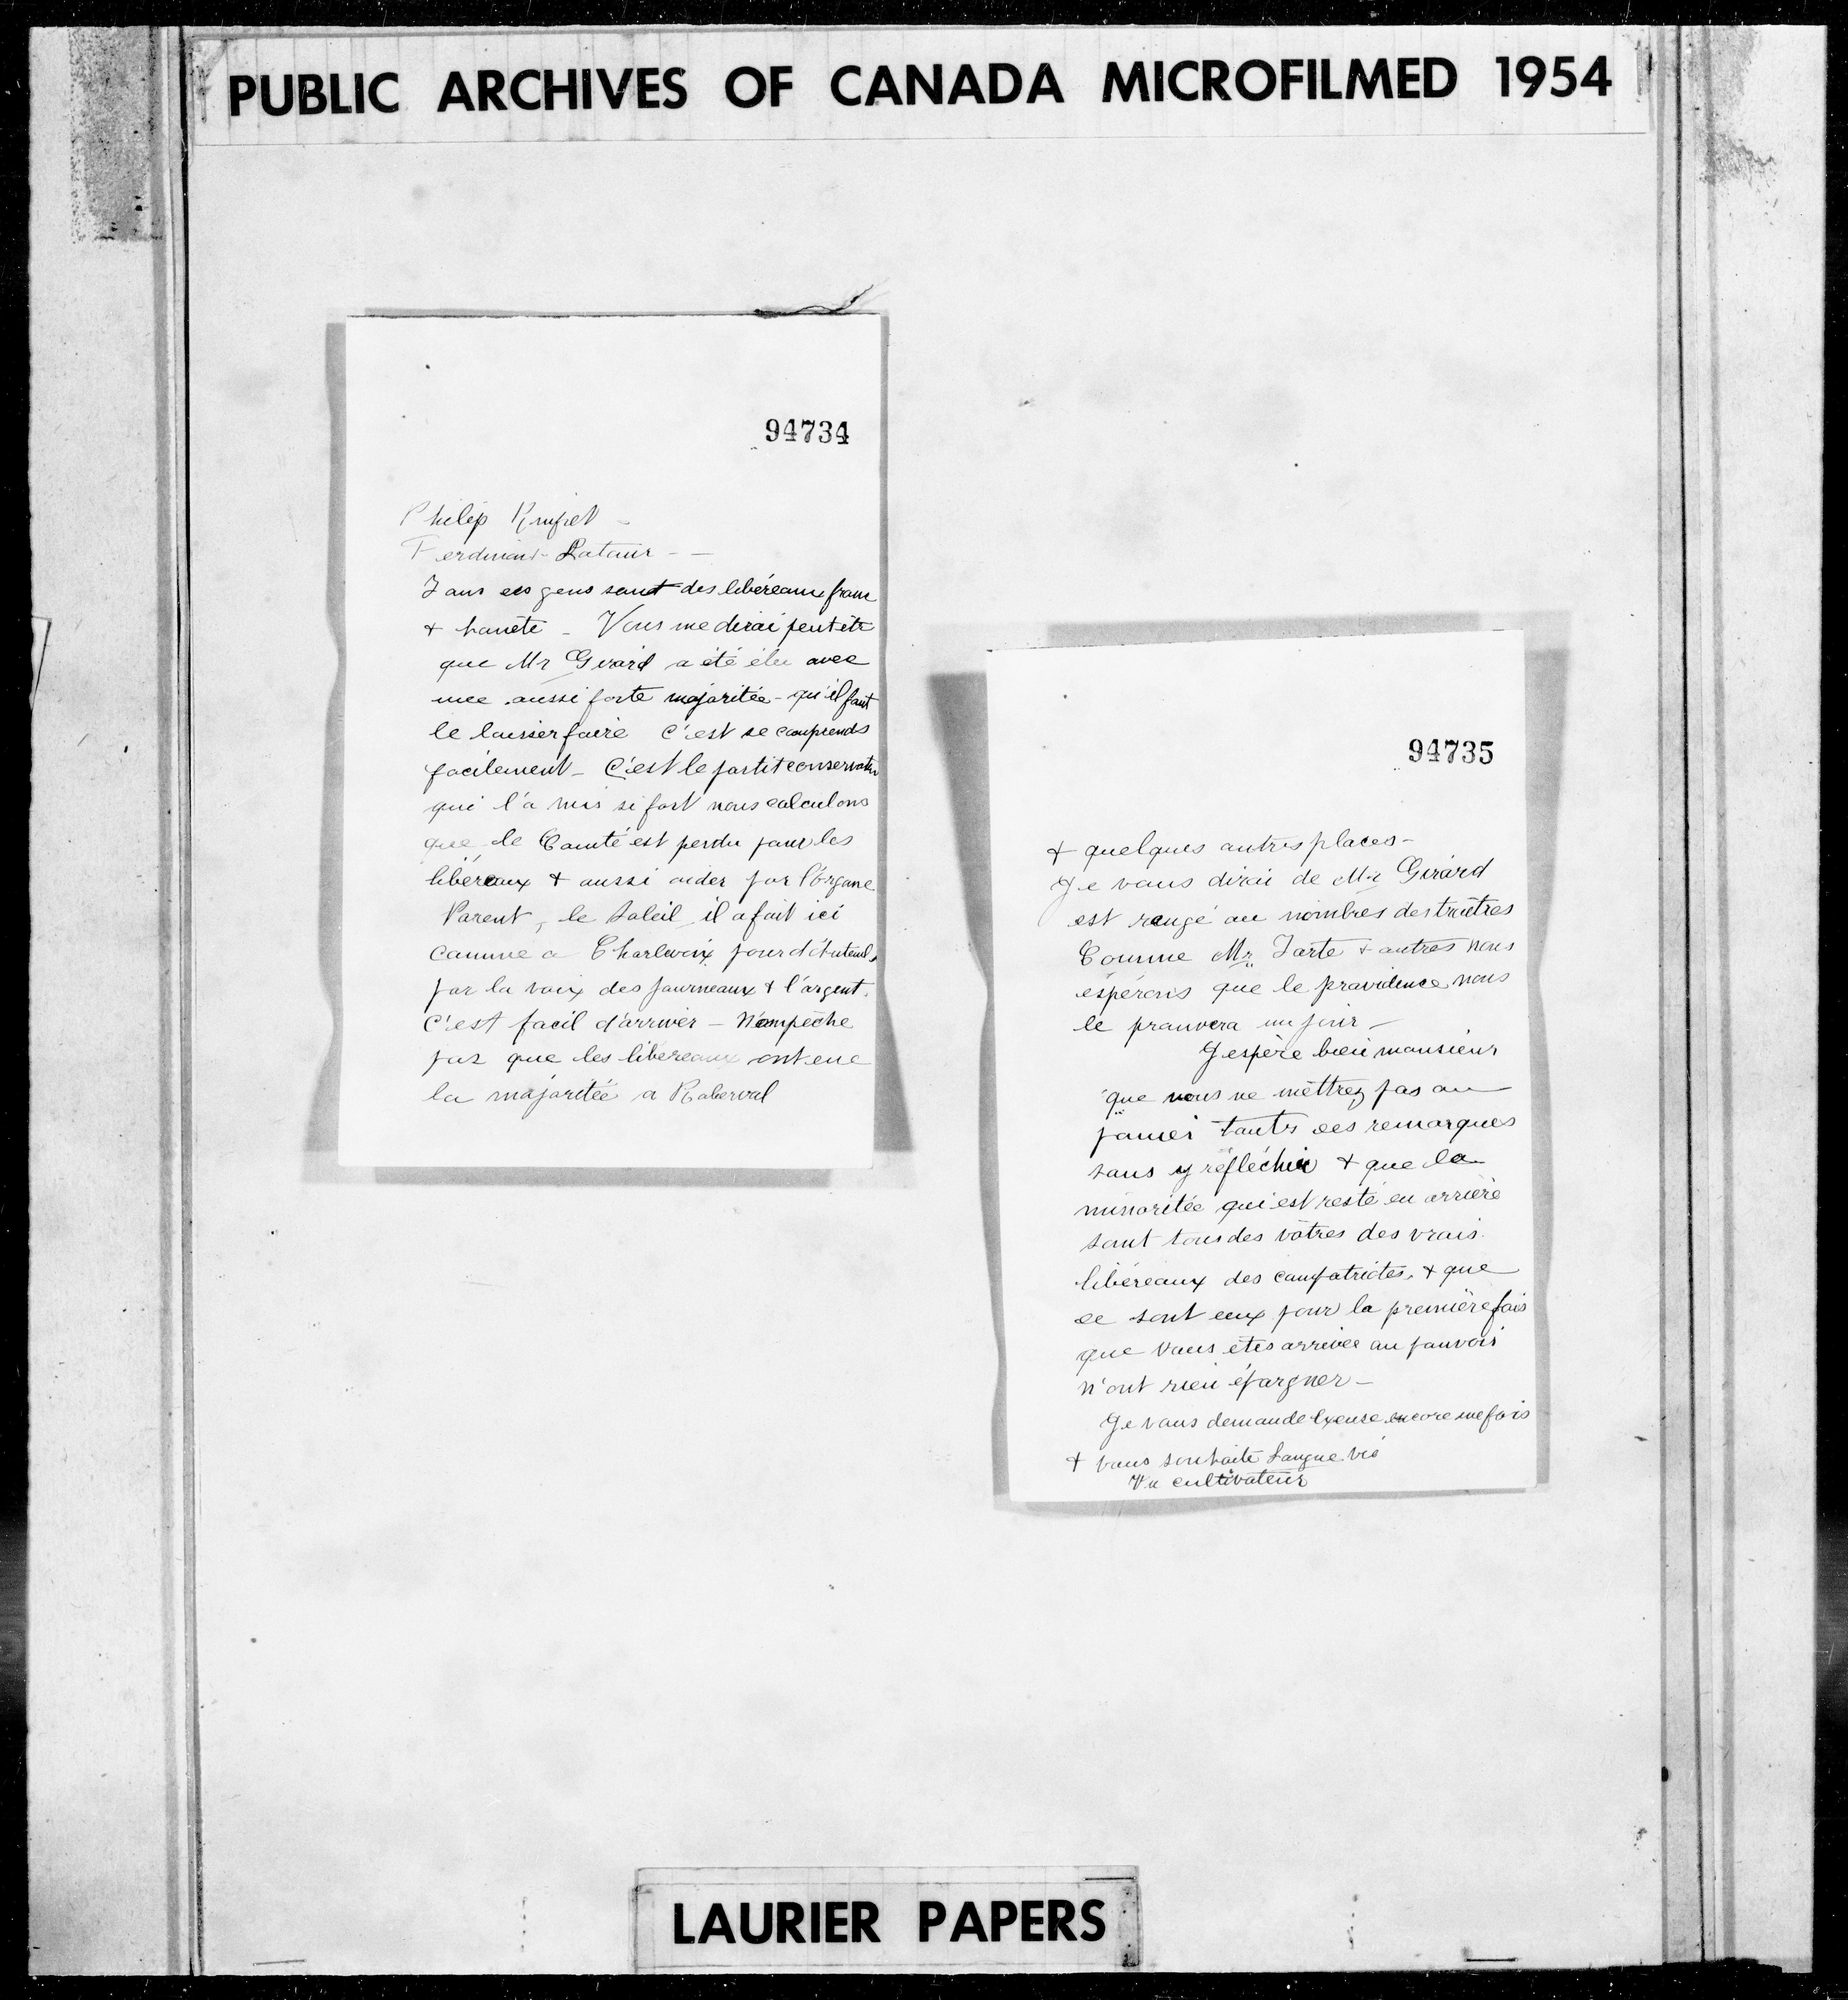 PUBLIC ARCHIVES OF CANADA MICROFILMED 1954
94734
Philip
Ferdinand Latour - -
Tous ces gens sont des libéreaux franc
& honète - Vous me dirai peut ètre
que Mr Girard a été élu avec
une aussi forte majoritée - qu'il faut
le laisser faire c'est se comprends
facilement - C'est le partit conservateur
qui l'a mis si fort nous calculons
que le Comté est perdu pour les
libéreaux & aussi aider par l'Organe
Parent, le Soleil il a fait ici
comme a Charlevoix pour
par la voix des journeaux & l'argent.
C'est facil d'arriver - N'empèche
pas que les libereaux ont eue
la majoritée a Roberval
94735
& quelques autres places -
Je vous dirai de Mr Girard
est rangé au nombres des traîtres
Comme Mr Tarte & autres nous
espérons que le providence nous
le prouvera un jour -
J'espère bien monsieur
que vous ne mettrez pas au
panier touts ces remarques
sans y réfléchir & que la
minoritée qui est resté en arrière
sont tous des vôtres des vrais
libéreaux des compatriotes, & que
ce sont eux pour la première fois
que vous ètes arrivée au pouvoir
n'ont rien épargner -
Je vous demande Excuse encore une fois
& vous souhaite Longue vie
Un cultivateur
LAURIER PAPERS